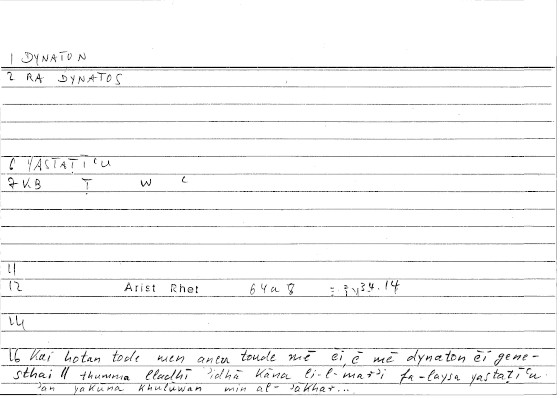 1 DYNATON
2 RA DYNATOS
6 YASTAṬĪʿU
7 V.B Ṭ W ʿ
11
12 Arist Rhet 64a8 = 34.14
14
16 Kai hotan tode men aneu toude mē ēi, ē mē dynaton ēi gene-
sthai // thumma lladhī ʾidhā kāna li-l-marʾi fa-laysa yastaṭīʿu
ʾan yakūna khuluwan min al-ʾākhar...